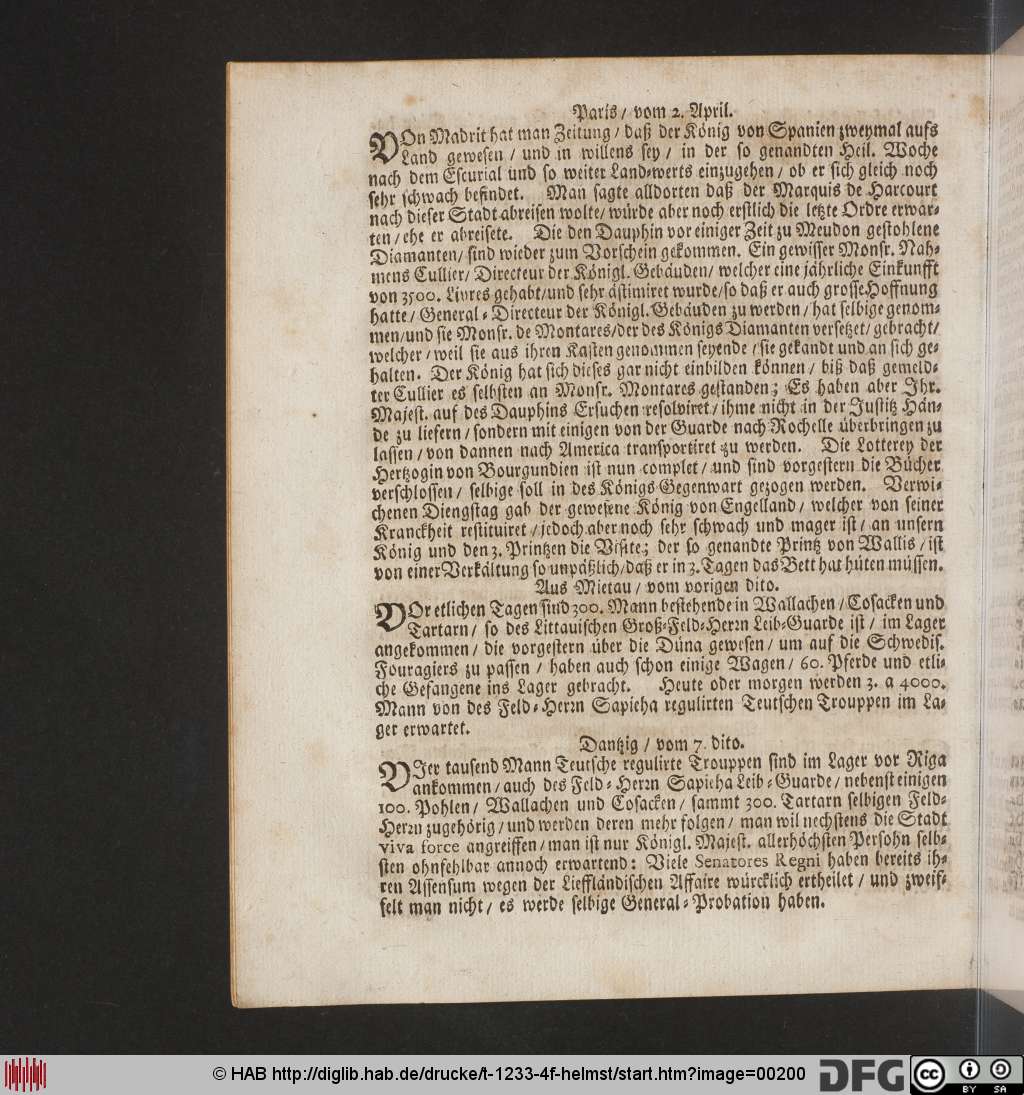 Paris / vom 2. April.
VOn Madrit hat man Zeitung / daß der König von Spanien zweymal aufs
Land gewesen / und in willens sey / in der so genandten Heil. Woche
nach dem Escurial und so weiter Land-werts einzugehen / ob er sich gleich noch
sehr schwach befindet. Man sagte alldorten daß der Marquis de Harcourt
nach dieser Stadt abreisen wolte / würde aber noch erstlich die letzte Ordre erwar-
ten / ehe er abreisete. Die den Dauphin vor einiger Zeit zu Meudon gestohlene
Diamanten / sind wieder zum Vorschein gekommen. Ein gewisser Monsr. Nah-
mens Cullier / Directeur der Königl. Gebäuden / welcher eine jährliche Einkunfft
von 3500. Livres gehabt / und sehr ästimiret wurde / so daß er auch grosse Hoffnung
hatte / General-Directeur der Königl. Gebäuden zu werden / hat selbige genom-
men / und sie Monsr. de Montares / der des Königs Diamanten versetzet / gebracht /
welcher / weil sie aus ihren Kasten genommen seyende / sie gekandt und an sich ge-
halten. Der König hat sich dieses gar nicht einbilden können / biß daß gemeld-
ter Cullier es selbsten an Monsr. Montares gestanden; Es haben aber Ihr.
Majest. auf des Dauphins Ersuchen resolviret / ihme nicht in der Justitz Hän-
de zu liefern / sondern mit einigen von der Guarde nach Rochelle überbringen zu
lassen / von dannen nach America transportiret zu werden. Die Lotterey der
Hertzogin von Bourgundien ist nun complet / und sind vorgestern die Bücher
verschlossen / selbige soll in des Königs Gegenwart gezogen werden. Verwi-
chenen Diengstag gab der gewesene König von Engelland / welcher von seiner
Kranckheit restituiret / jedoch aber noch sehr schwach und mager ist / an unsern
König und den 3. Printzen die Visite; der so genandte Printz von Wallis / ist
von einer Verkältung so unpäßlich / daß er in 3. Tagen das Bett hat hüten müssen.
Aus Mietau / vom vorigen dito.
VOr etlichen Tagen sind 300. Mann bestehende in Wallachen / Cosacken und
Tartarn / so des Littauischen Groß-Feld-Herrn Leib-Guarde ist / im Lager
angekommen / die vorgestern über die Düna gewesen / um auf die Schwedis.
Fouragiers zu passen / haben auch schon einige Wagen / 60. Pferde und etli-
che Gefangene ins Lager gebracht. Heute oder morgen werden 3. a 4000.
Mann von des Feld-Herrn Sapieha regulirten Teutschen Trouppen im La-
ger erwartet.
Dantzig / vom 7. dito.
VIer tausend Mann Teutsche regulirte Trouppen sind im Lager vor Riga
ankommen / auch des Feld-Herrn Sapieha Leib-Guarde / nebenst einigen
100. Pohlen / Wallachen und Cosacken / sammt 300. Tartarn selbigen Feld-
Herrn zugehörig / und werden deren mehr folgen / man wil nechstens die Stadt
viva force angreiffen / man ist nur Königl. Majest. allerhöchsten Persohn selb-
sten ohnfehlbar annoch erwartend: Viele Senatores Regni haben bereits ih-
ren Assensum wegen der Liefländischen Affaire würcklich ertheilet / und zweif-
felt man nicht / es werde selbige General-Probation haben.
© HAB http://diglib.hab.de/drucke/t-1233-4f-helmst/start.htm?image=00200
DFG
cc BY SA